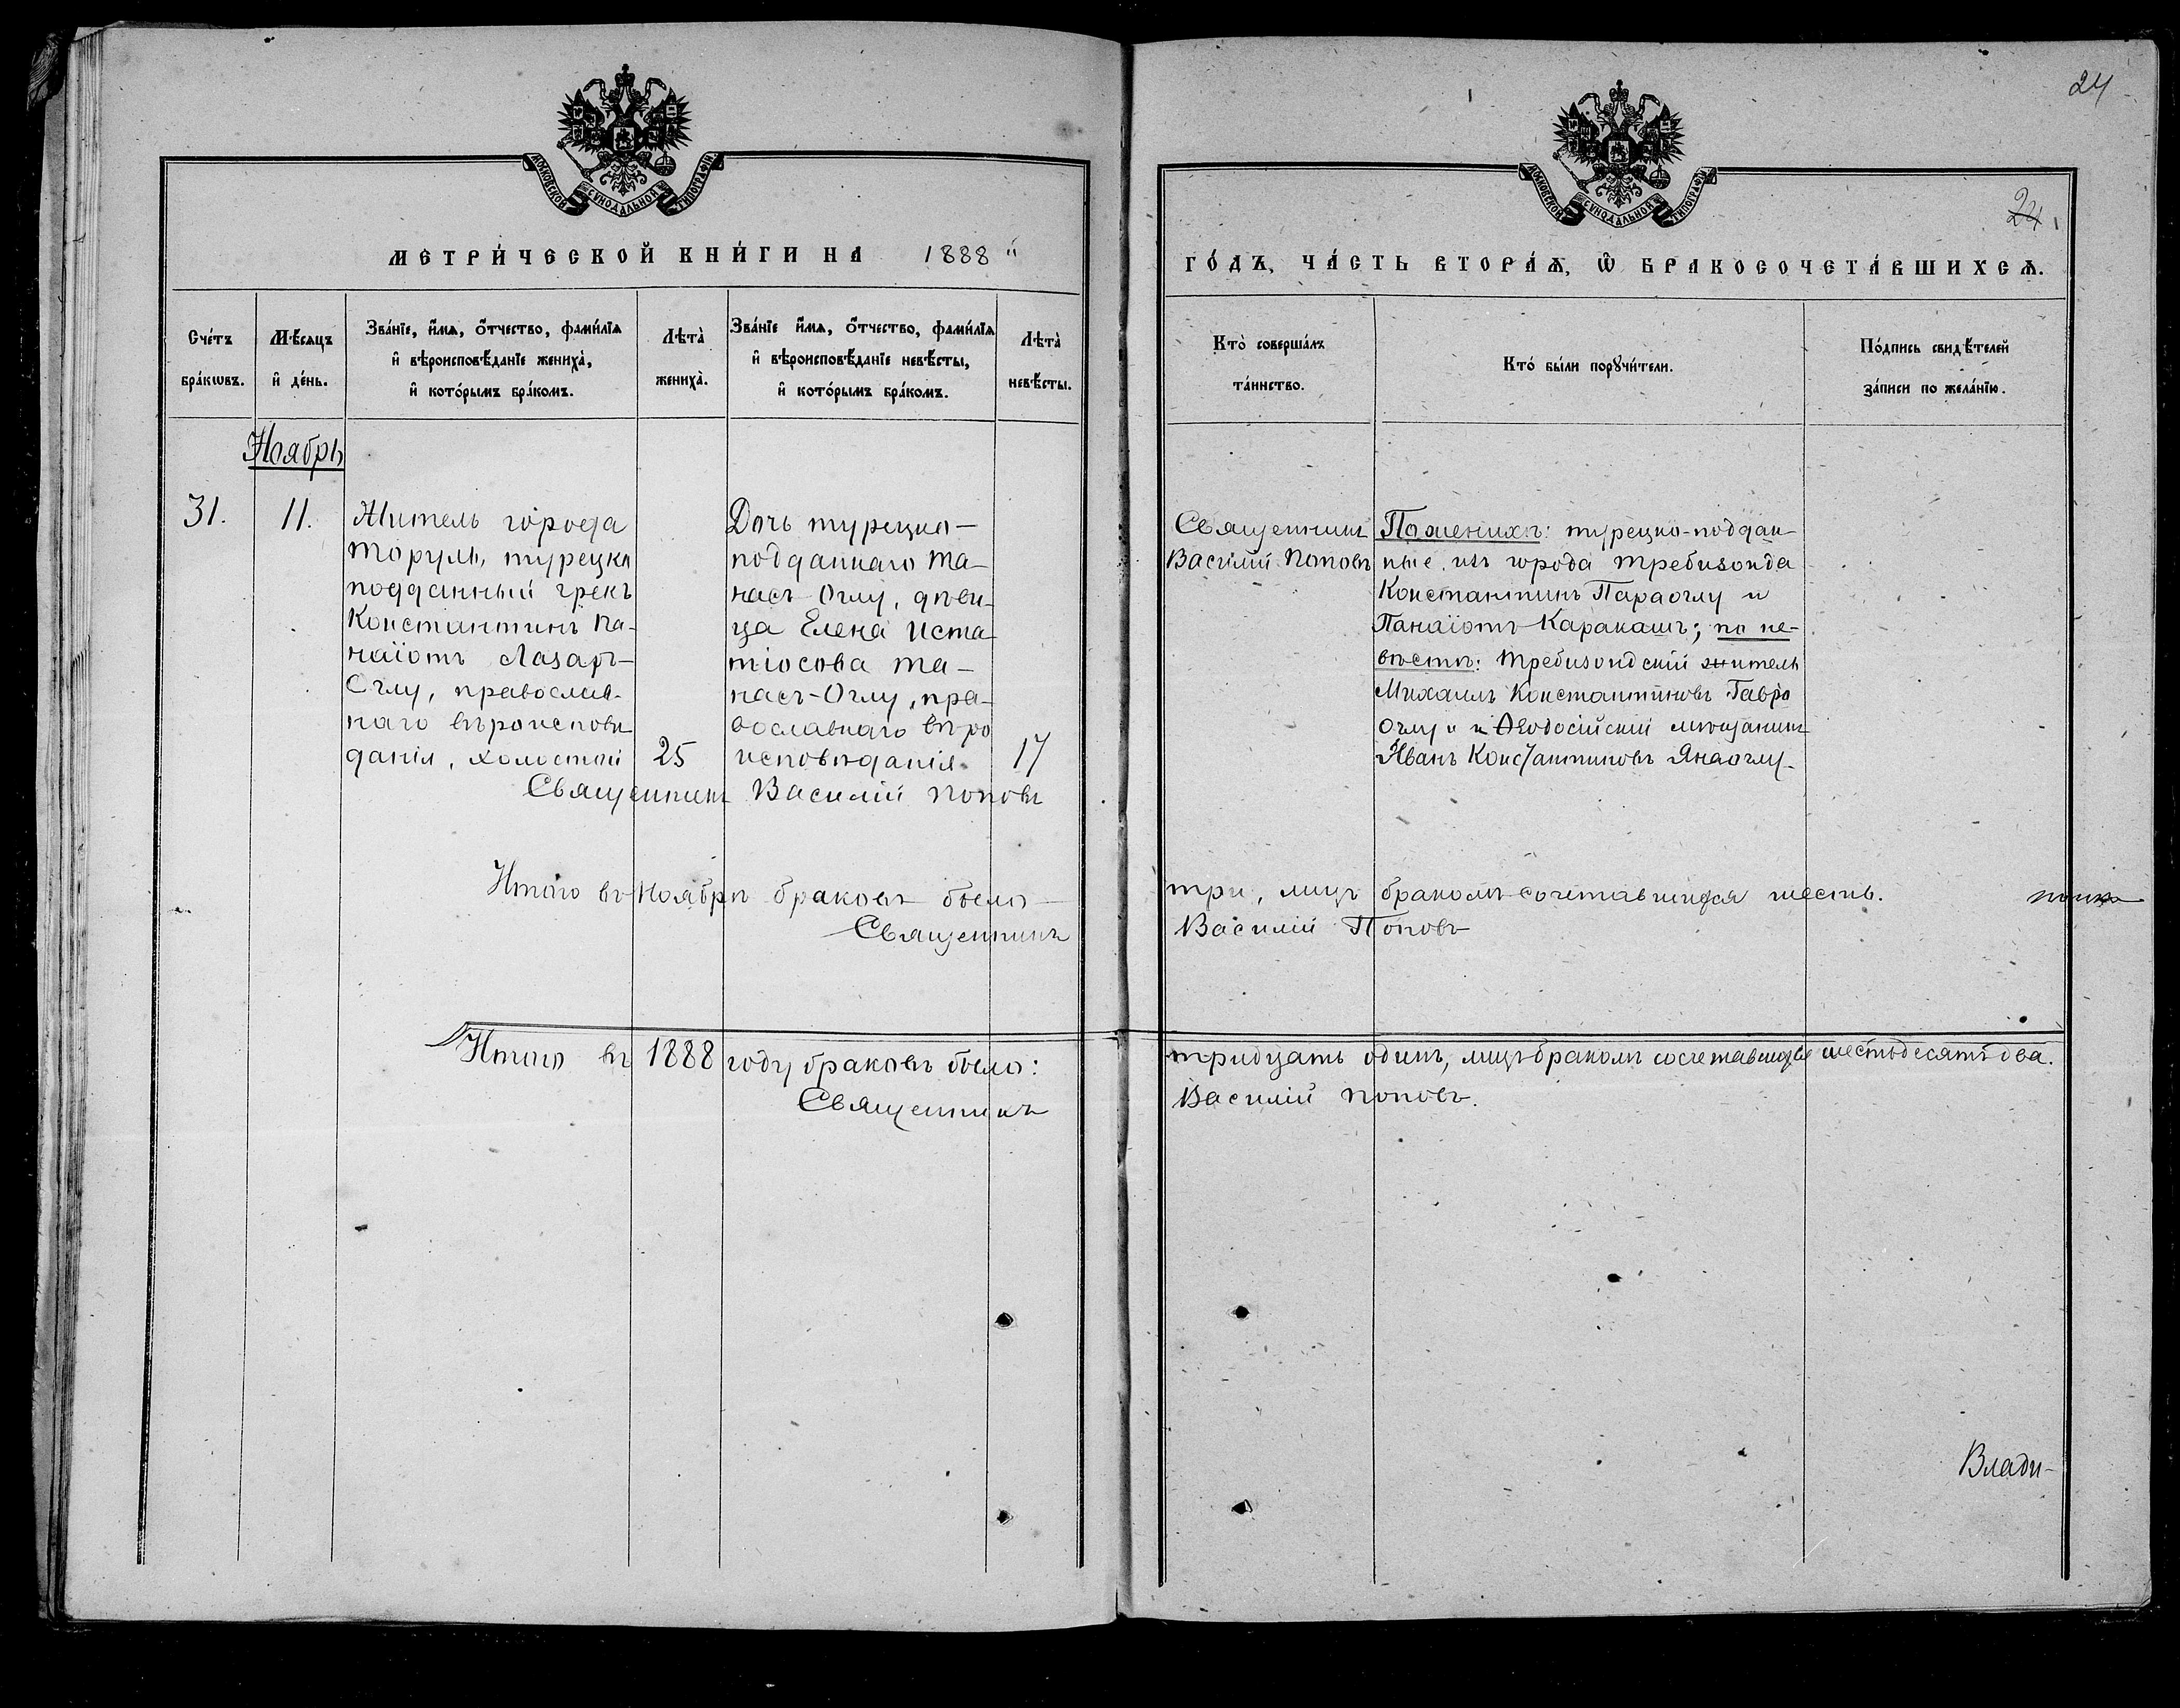 24
МОСКОВСКОЙ СѴНОДАЛЬНОЙ ТИПОГРАФІИ
МОСКОВСКОЙ СѴНОДАЛЬНОЙ ТИПОГРАФІИ
24
МЕТРИ́ЧЕСКОЙ КНИ́ГИ НА 1888
ГО́ДЪ, ЧА́СТЬ ВТОРА́Ѧ, Ѿ БРАКОСОЧЕТА́ВШИХСѦ.
Сче́тъ
бра́кѡвъ.
Мѣ́сяцъ
и҆ де́нь.
Зва́нїе, и҆́мѧ, ѻ҆́тчество, фами́лїѧ
и҆ вѣроисповѣ́данїе жениха̀,
и҆ кото́рымъ бра́комъ.
Лѣта̀
жениха̀.
Зва́нїе и҆́мѧ, ѻ҆́тчество, фами́лїѧ
и҆ вѣроисповѣ́данїе невѣ́сты,
и҆ кото́рымъ бра́комъ.
Лѣта̀
невѣ́сты.
Кто̀ соверша́лъ
та́инство.
Кто́ бы́ли порꙋчи́тели.
По́дпись свидѣ́телей
за́писи по жела́нїю.
Ноябрь
31.
11.
Житель города
Торуль, турецко
подданный грекъ
Константинъ Па-
наіотъ Лазаръ-
Оглу, православ-
наго вѣроисповѣ
данія, холостой
25
Дочь турецко-
подданнаго Та-
насъ-Оглу, дѣви-
ца Елена Иста
тіосова Та-
насъ-Оглу, пра-
вославнаго вѣро
исповѣданія
17
Священникъ Василій Поповъ
Священникъ
Василій Поповъ
По женихѣ: турецко-поддан-
ные, изъ города Требизонда
Константинъ Параоглу и
Панаіотъ Каракашъ; по не-
вѣстѣ: Требизондскій житель
Михаилъ Константиновъ Гавро
Оглу и Ѳеодосійскій мѣщанинъ
Иванъ Константиновъ Янаоглу-
Итого въ Ноябрѣ браковъ было три, лицъ бракомъ сочетавшихся шесть.
Священникъ Василій Поповъ
Итого въ 1888 году браковъ было: тридцать одинъ, лицъ бракомъ сочетавшихся шестьдесятъ два.
Священникъ Василій Поповъ.
Влади-